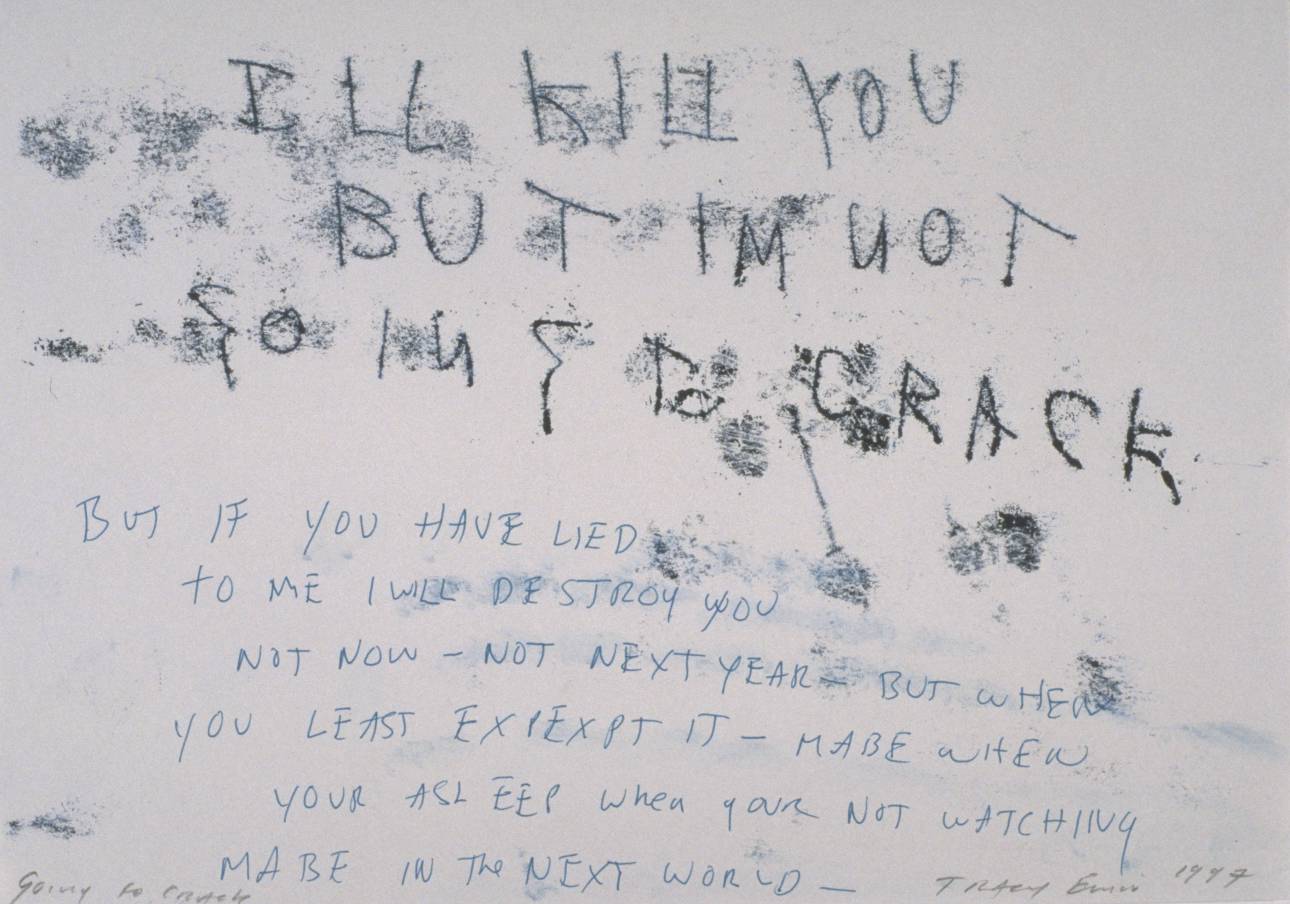 ILL KILL YOU
BUT IM NOT
GOING TO CRACK
BUT IF YOU HAVE LIED
TO ME I WILL DESTROY YOU
NOT NOW – NOT NEXT YEAR – BUT WHEN
YOU LEAST EXPEXPT IT – MABE WHEN
YOUR ASLEEP when your NOT WATCHING
MABE IN The NEXT WORLD –
Going to Crack Tracy Emin 1997